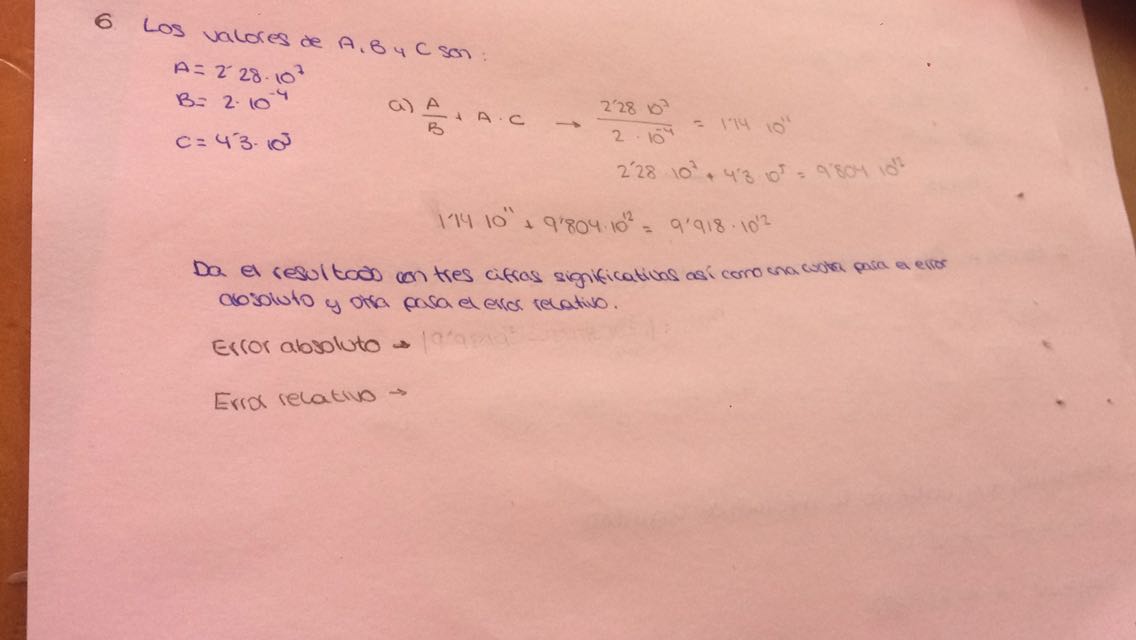 6 Los valores de A, B y C son:
A = 2'28·10⁷
B = 2·10⁻⁴
C = 4'3·10⁵
a) A/B + A·C → 2'28 10⁷ / 2 · 10⁻⁴ = 1'14 10¹¹
2'28 10⁷ + 4'3 10⁵ = 9'804 10¹²
1'14 10¹¹ + 9'804·10¹² = 9'918·10¹²
Da el resultado con tres cifras significativas así como una cota para el error
absoluto y otra para el error relativo.
Error absoluto →
Error relativo →